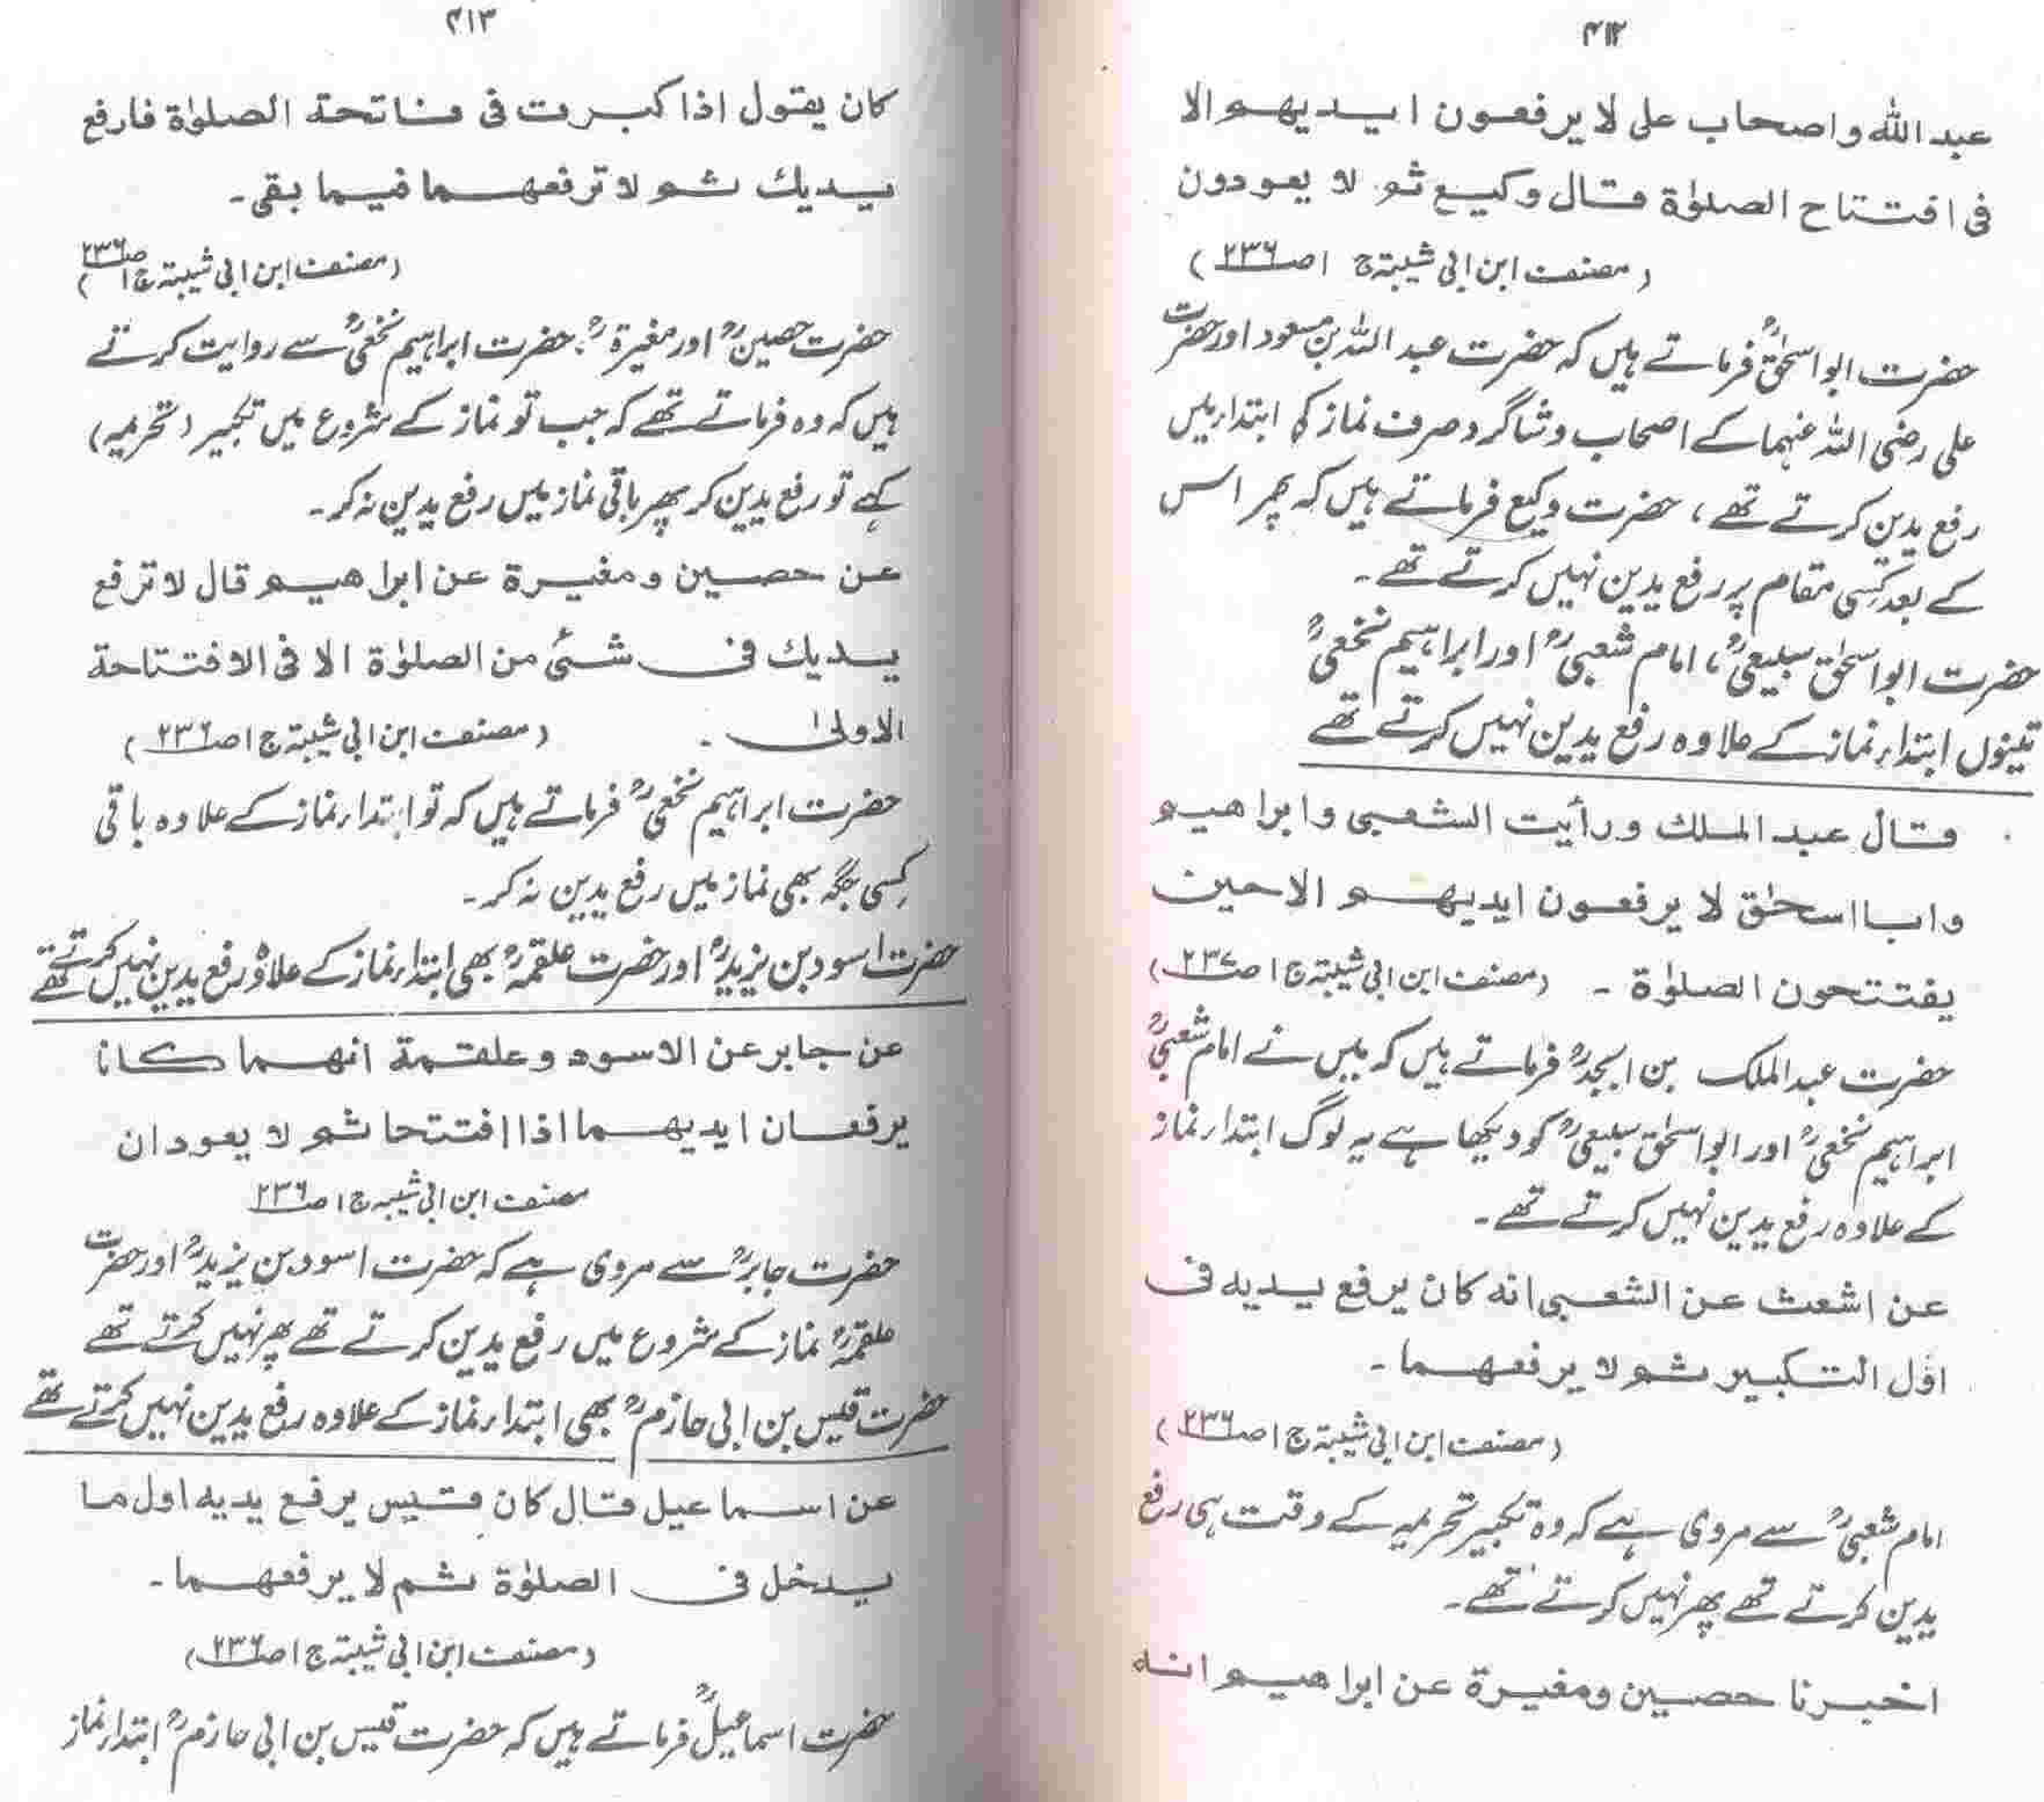 ۴۱۲
عبد الله و اصحاب علی لا یرفعون ایدیهم الا
فی افتتاح الصلوٰة قال وکیع ثم لا یعودون
(مصنف ابن ابی شیبۃ ج ۱ ص۲۳۶)
حضرت ابو اسحٰقؒ فرماتے ہیں کہ حضرت عبد اللہ بن مسعود اور حضرت
علی رضی اللہ عنہما کے اصحاب و شاگرد صرف نماز کی ابتداء میں
رفع یدین کرتے تھے، حضرت وکیع فرماتے ہیں کہ پھر اس
کے بعد کسی مقام پر رفع یدین نہیں کرتے تھے۔
حضرت ابو اسحٰق سبیعیؒ، امام شعبیؒ اور ابراہیم نخعیؒ
تینوں ابتداء نماز کے علاوہ رفع یدین نہیں کرتے تھے
قال عبد الملك ورأیت الشعبی وابراهیم
وابا اسحٰق لا یرفعون ایدیهم الا حین
یفتتحون الصلوٰة ۔ (مصنف ابن ابی شیبۃ ج ۱ ص۲۳۷)
حضرت عبد الملک بن ابجرؒ فرماتے ہیں کہ میں نے امام شعبیؒ
ابراہیم نخعیؒ اور ابو اسحٰق سبیعیؒ کو دیکھا ہے یہ لوگ ابتداء نماز
کے علاوہ رفع یدین نہیں کرتے تھے۔
عن اشعث عن الشعبی انه کان یرفع یدیه فی
اول التکبیر ثم لا یرفعهما ۔
(مصنف ابن ابی شیبۃ ج ۱ ص۲۳۶)
امام شعبیؒ سے مروی ہے کہ وہ تکبیر تحریمہ کے وقت ہی رفع
یدین کرتے تھے پھر نہیں کرتے تھے۔
اخبرنا حصین ومغیرة عن ابراهیم انه
۴۱۳
کان یقول اذا کبرت فی فاتحة الصلوٰة فارفع
یدیك ثم لا ترفعهما فیما بقی ۔
(مصنف ابن ابی شیبۃ ج ۱ ص۲۳۶)
حضرت حصینؒ اور مغیرۃؒ، حضرت ابراہیم نخعیؒ سے روایت کرتے
ہیں کہ وہ فرماتے تھے کہ جب تو نماز کے شروع میں تکبیر (تحریمہ)
کہے تو رفع یدین کر پھر باقی نماز میں رفع یدین نہ کر۔
عن حصین ومغیرة عن ابراهیم قال لا ترفع
یدیك فی شئ من الصلوٰة الا فی الافتتاحة
الاولیٰ ۔ (مصنف ابن ابی شیبۃ ج ۱ ص۲۳۶)
حضرت ابراہیم نخعیؒ فرماتے ہیں کہ تو ابتداء نماز کے علاوہ باقی
کسی جگہ بھی نماز میں رفع یدین نہ کر۔
حضرت اسود بن یزیدؒ اور حضرت علقمہؒ بھی ابتداء نماز کے علاوہ رفع یدین نہیں کرتے تھے
عن جابر عن الاسود وعلقمة انهما کانا
یرفعان ایدیهما اذا افتتحا ثم لا یعودان
مصنف ابن ابی شیبہ ج ۱ ص۲۳۶
حضرت جابرؒ سے مروی ہے کہ حضرت اسود بن یزیدؒ اور حضرت
علقمہؒ نماز کے شروع میں رفع یدین کرتے تھے پھر نہیں کرتے تھے
حضرت قیس بن ابی حازمؒ بھی ابتداء نماز کے علاوہ رفع یدین نہیں کرتے تھے
عن اسماعیل قال کان قیس یرفع یدیه اول ما
یدخل فی الصلوٰة ثم لا یرفعهما ۔
(مصنف ابن ابی شیبۃ ج ۱ ص۲۳۶)
حضرت اسماعیلؒ فرماتے ہیں کہ حضرت قیس بن ابی حازمؒ ابتداء نماز